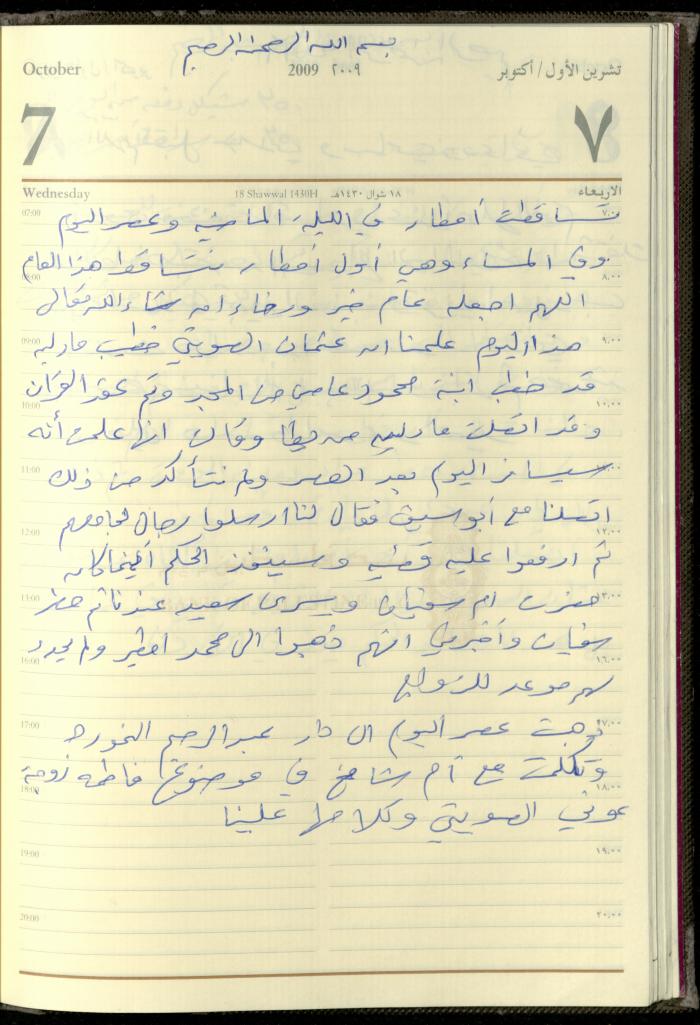 بسم الله الرحمن الرحيم
October 2009 ٢٠٠٩ تشرين الأول/أكتوبر
7 ٧
Wednesday 18 Shawwal 1430H ١٨ شوال ١٤٣٠هـ الاربعاء
07:00 تساقطت أمطار في الليلة الماضيه وعصر اليوم ٧:٠٠
وفي المساء وهي أول أمطار تتساقط هذا العام
08:00 ٨:٠٠
اللهم اجعله عام خير ورخاء ان شاء الله تعالى
09:00 هذا اليوم علمنا ان عثمان الصويتي خطيب مادلين ٩:٠٠
قد خطب ابنة محمود عاصي من المجد وتم عقد القران
10:00 ١٠:٠٠
وقد اتصلت مادلين من وقالت انها علمت أنه
11:00 سيسافر اليوم بعد العصر ولم نتأكد من ذلك
اتصلنا مع أبو سيف فقال لنا ارسلوا رجال
12:00 ١٢:٠٠
ثم ارفعوا عليه قضيه وسينفذ الحكم أينما كان
13:00 حضرت ام سفيان ويسرى سعيد عندنا ثم حضر ١٣:٠٠
سفيان وأخبرني انهم ذهبوا الى محمد ولم يحدد
16:00 ١٦:٠٠
لهم موعد للزواج
17:00 ذهبت عصر اليوم الى دار عبد الرحيم ١٧:٠٠
وتكلمت مع أم في موضوع فاطمه زوجة
18:00 ١٨:٠٠
عوني الصويتي وكلامها علينا
19:00 ١٩:٠٠
20:00 ٢٠:٠٠